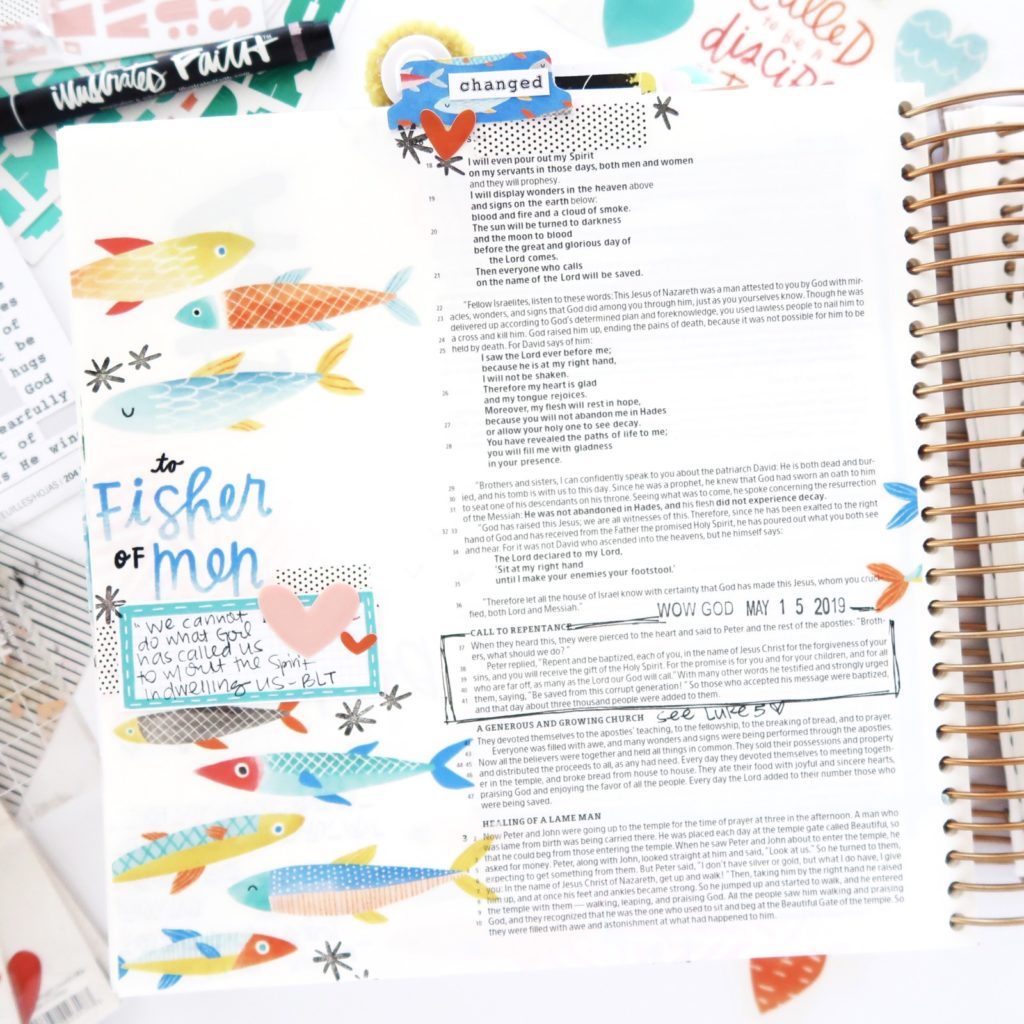 illustrated Faith™
called
to be a
changed
of
t be
hugs
God
earfully
t of
s He win
FEUILLES/HOJAS | 204
to
Fisher
OF men
"we cannot
do what God
has called us
to w/out the Spirit
indwelling US - BLT
18 I will even pour out my Spirit
on my servants in those days, both men and women
and they will prophesy.
19 I will display wonders in the heaven above
and signs on the earth below:
blood and fire and a cloud of smoke.
20 The sun will be turned to darkness
and the moon to blood
before the great and glorious day of
the Lord comes.
21 Then everyone who calls
on the name of the Lord will be saved.
22 "Fellow Israelites, listen to these words: This Jesus of Nazareth was a man attested to you by God with mir-
acles, wonders, and signs that God did among you through him, just as you yourselves know. 23 Though he was
delivered up according to God's determined plan and foreknowledge, you used lawless people to nail him to
24 a cross and kill him. God raised him up, ending the pains of death, because it was not possible for him to be
25 held by death. For David says of him:
I saw the Lord ever before me;
because he is at my right hand,
I will not be shaken.
26 Therefore my heart is glad
and my tongue rejoices.
Moreover, my flesh will rest in hope,
27 because you will not abandon me in Hades
or allow your holy one to see decay.
28 You have revealed the paths of life to me;
you will fill me with gladness
in your presence.
29 "Brothers and sisters, I can confidently speak to you about the patriarch David: He is both dead and bur-
30 ied, and his tomb is with us to this day. Since he was a prophet, he knew that God had sworn an oath to him
31 to seat one of his descendants on his throne. Seeing what was to come, he spoke concerning the resurrection
of the Messiah: He was not abandoned in Hades, and his flesh did not experience decay.
32 33 "God has raised this Jesus; we are all witnesses of this. Therefore, since he has been exalted to the right
hand of God and has received from the Father the promised Holy Spirit, he has poured out what you both see
34 and hear. For it was not David who ascended into the heavens, but he himself says:
The Lord declared to my Lord,
'Sit at my right hand
35 until I make your enemies your footstool.'
36 "Therefore let all the house of Israel know with certainty that God has made this Jesus, whom you cruci-
fied, both Lord and Messiah."
WOW GOD MAY 15 2019
CALL TO REPENTANCE
37 When they heard this, they were pierced to the heart and said to Peter and the rest of the apostles: "Broth-
ers, what should we do?"
38 Peter replied, "Repent and be baptized, each of you, in the name of Jesus Christ for the forgiveness of your
39 sins, and you will receive the gift of the Holy Spirit. For the promise is for you and for your children, and for all
40 who are far off, as many as the Lord our God will call." With many other words he testified and strongly urged
41 them, saying, "Be saved from this corrupt generation!" So those who accepted his message were baptized,
and that day about three thousand people were added to them.
A GENEROUS AND GROWING CHURCH see Luke 5
42 They devoted themselves to the apostles' teaching, to the fellowship, to the breaking of bread, and to prayer.
43 Everyone was filled with awe, and many wonders and signs were being performed through the apostles.
44 45 Now all the believers were together and held all things in common. They sold their possessions and property
46 and distributed the proceeds to all, as any had need. Every day they devoted themselves to meeting togeth-
er in the temple, and broke bread from house to house. They ate their food with joyful and sincere hearts,
47 praising God and enjoying the favor of all the people. Every day the Lord added to their number those who
were being saved.
HEALING OF A LAME MAN
3 Now Peter and John were going up to the temple for the time of prayer at three in the afternoon. A man who
was lame from birth was being carried there. He was placed each day at the temple gate called Beautiful, so
that he could beg from those entering the temple. When he saw Peter and John about to enter the temple, he
asked for money. Peter, along with John, looked straight at him and said, "Look at us." So he turned to them,
expecting to get something from them. But Peter said, "I don't have silver or gold, but what I do have, I give
you: In the name of Jesus Christ of Nazareth, get up and walk!" Then, taking him by the right hand he raised
him up, and at once his feet and ankles became strong. So he jumped up and started to walk, and he entered
the temple with them — walking, leaping, and praising God. All the people saw him walking and praising
God, and they recognized that he was the one who used to sit and beg at the Beautiful Gate of the temple. So
they were filled with awe and astonishment at what had happened to him.